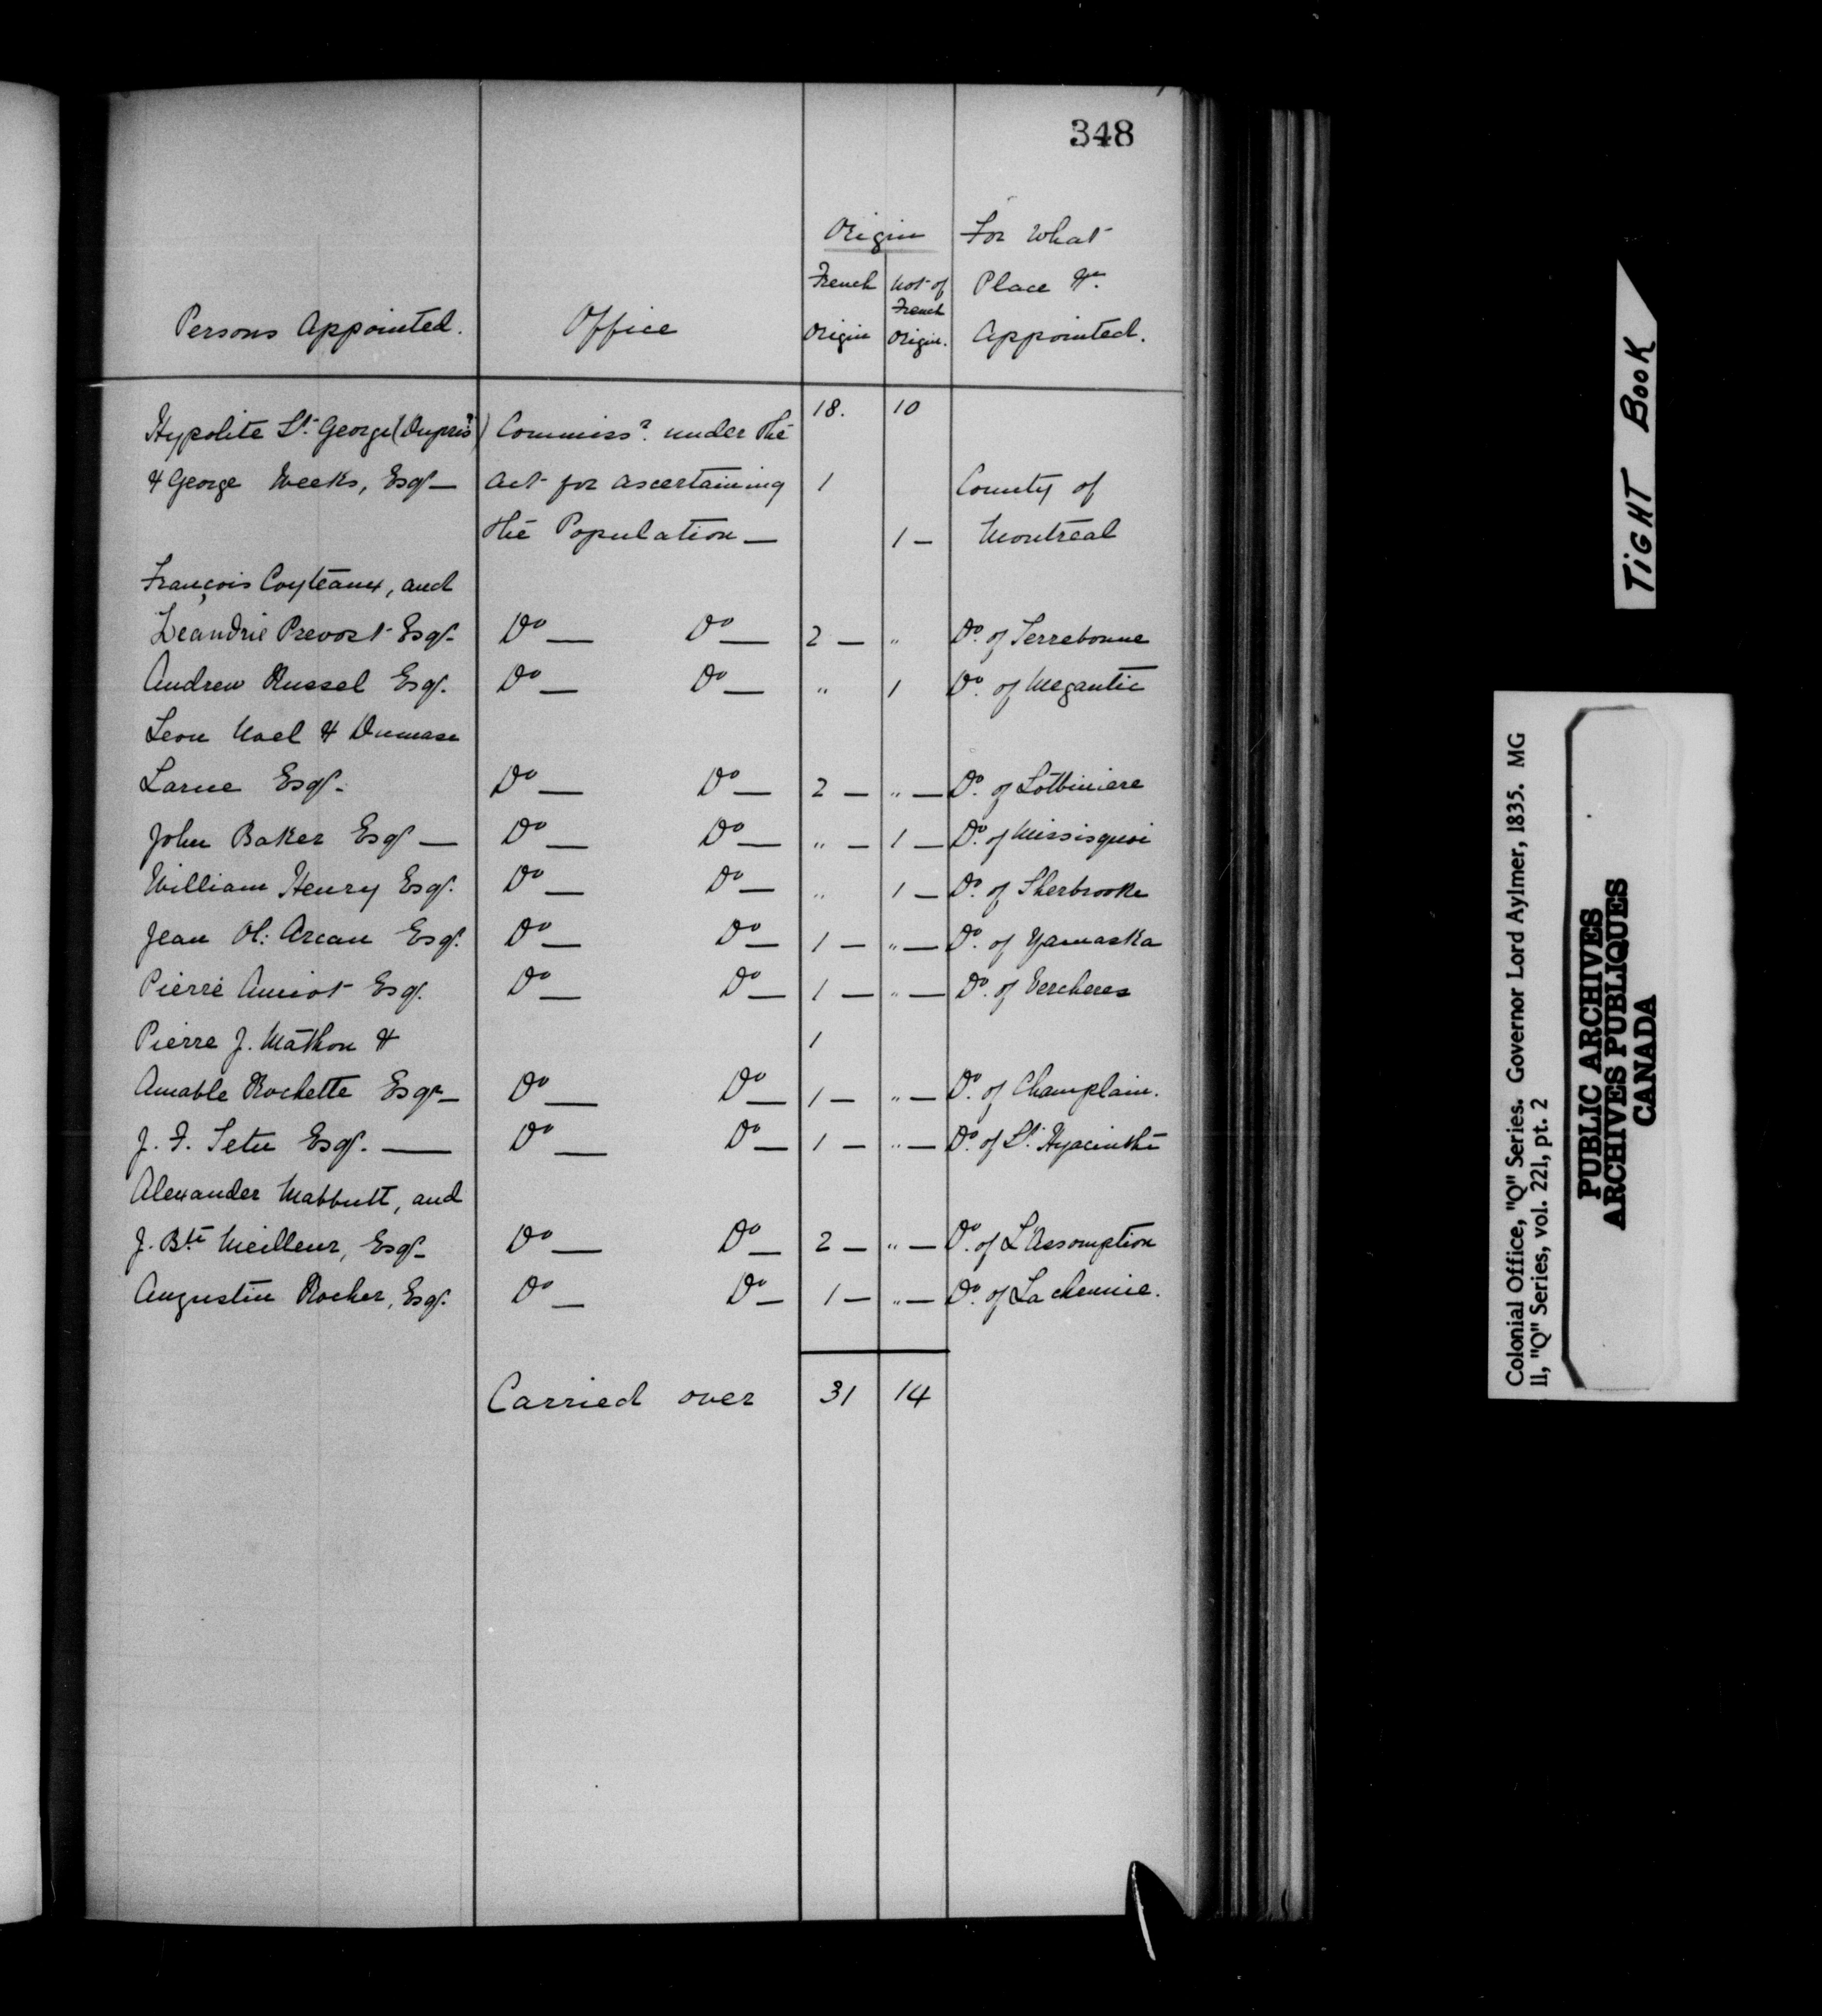 348
Origin For What
French not of Place &c.
French
Persons Appointed. Office Origin Origin. Appointed.
18. 10
Hypolite St. George (Dupré) Commissr. under the
& George Weeks, Esqr — Act for ascertaining 1 County of
the Population — 1 — Montreal
François Coyteaux, and
Leandre Prevost Esqr. Do — Do — 2 — " Do. of Terrebonne
Andrew Russel Esqr. Do — Do — " 1 Do. of Megantic
Leon Noel & Damase
Larue Esqr. Do — Do — 2 — " — Do. of Lotbiniere
John Baker Esqr — Do — Do — " — 1 — Do. of Missisquoi
William Henry Esqr. Do — Do — " 1 — Do. of Sherbrooke
Jean Ol: Arcan Esqr. Do — Do — 1 — " — Do. of Yamaska
Pierre Amiot Esqr. Do — Do — 1 — " — Do. of Vercheres
Pierre J. Mathon & 1
Amable Rochette Esqr — Do — Do — 1 — " — Do. of Champlain.
J. F. Tetu Esqr. — Do — Do — 1 — " — Do. of St. Hyacinthe
Alexander Mabbutt, and
J. Bte Meilleur, Esqr — Do — Do — 2 — " — Do. of L'Assomption
Augustin Rocher, Esqr. Do — Do — 1 — " — Do. of Lachenaie.
Carried over 31 14
TIGHT BOOK
Colonial Office, "Q" Series. Governor Lord Aylmer, 1835. MG
11, "Q" Series, vol. 221, pt. 2
PUBLIC ARCHIVES
ARCHIVES PUBLIQUES
CANADA